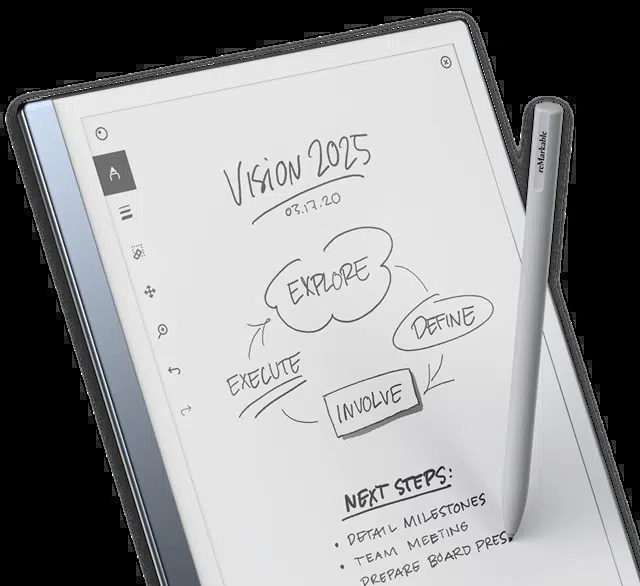 VISION 2025
03.17.20
EXPLORE
DEFINE
INVOLVE
EXECUTE
NEXT STEPS:
• DETAIL MILESTONES
• TEAM MEETING
PREPARE BOARD PRES
reMarkable